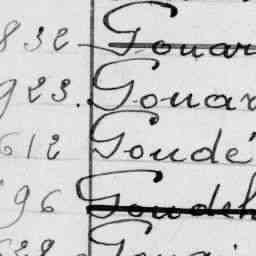 832 Gouar
923. Gouar
612 Goudé
96 Goudeh